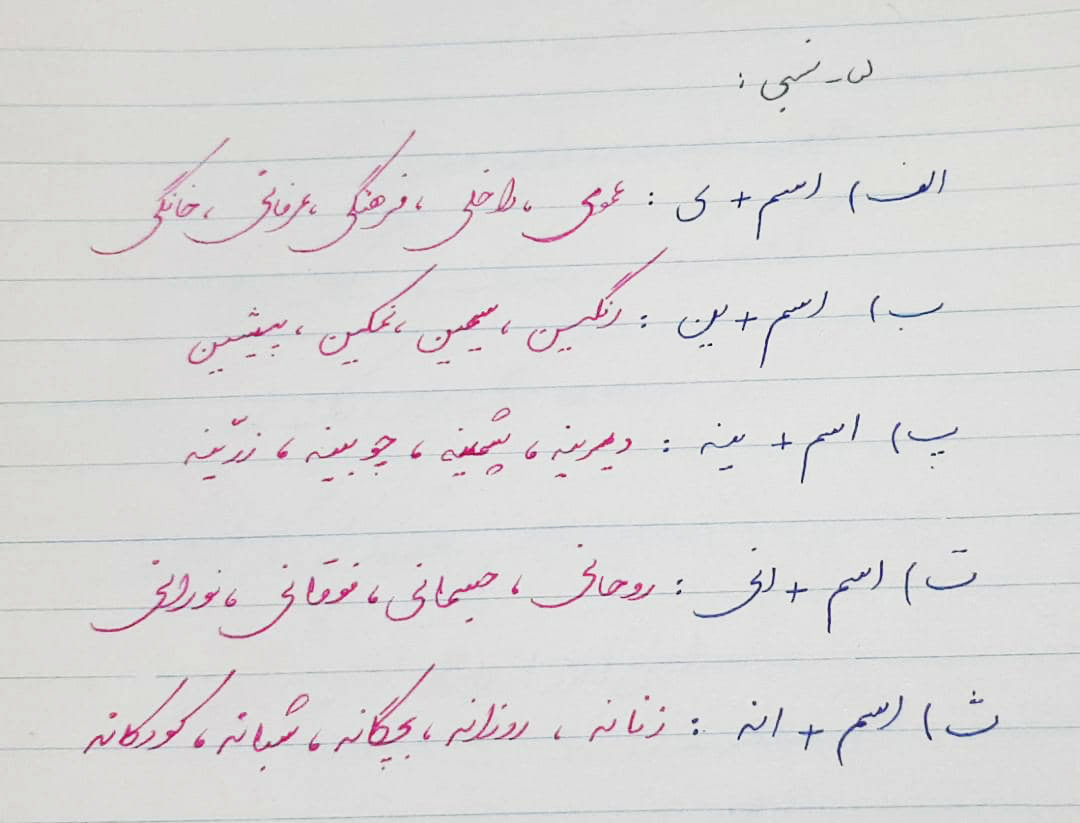 ۵- نسبی :
الف) اسم + ی : عمومی ، داخلی ، فرهنگی ، عرفانی ، خانگی
ب) اسم + ین : رنگین ، سیمین ، نمکین ، پیشین
پ) اسم + ینه : دیرینه ، پشمینه ، چوبینه ، زرّینه
ت) اسم + انی : روحانی ، جسمانی ، فوقانی ، نورانی
ث) اسم + انه : زنانه ، روزانه ، بچگانه ، شبانه ، کودکانه